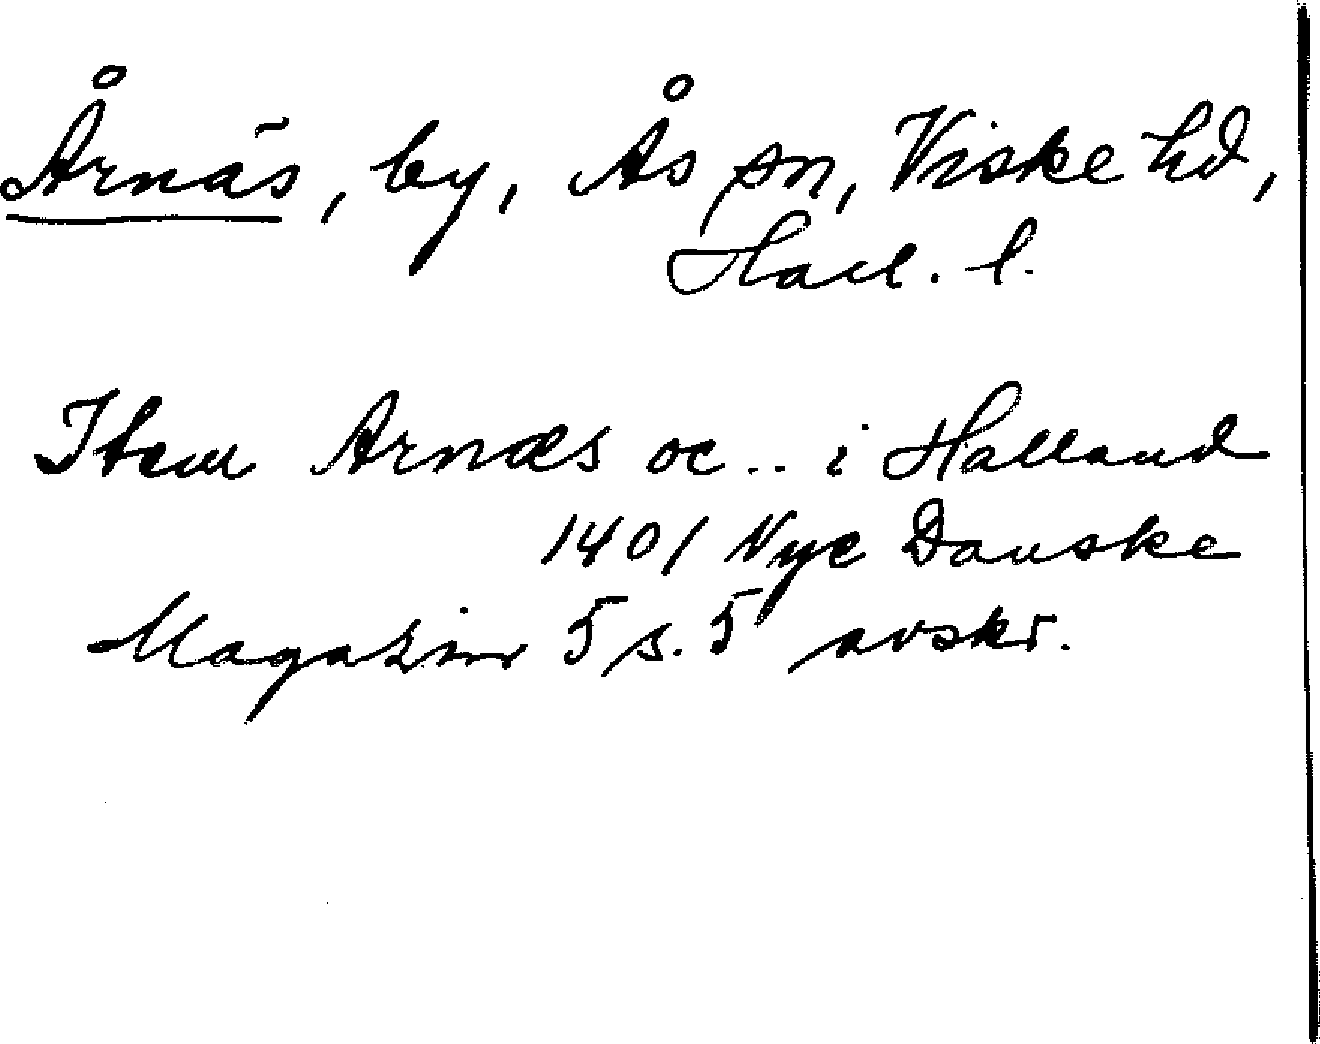 Årnäs, by, Ås sn, Viske hd,
Hall. l.
Item Arnæs oc .. i Halland
1401 Nye Danske
Magazin 5 s. 5 avskr.